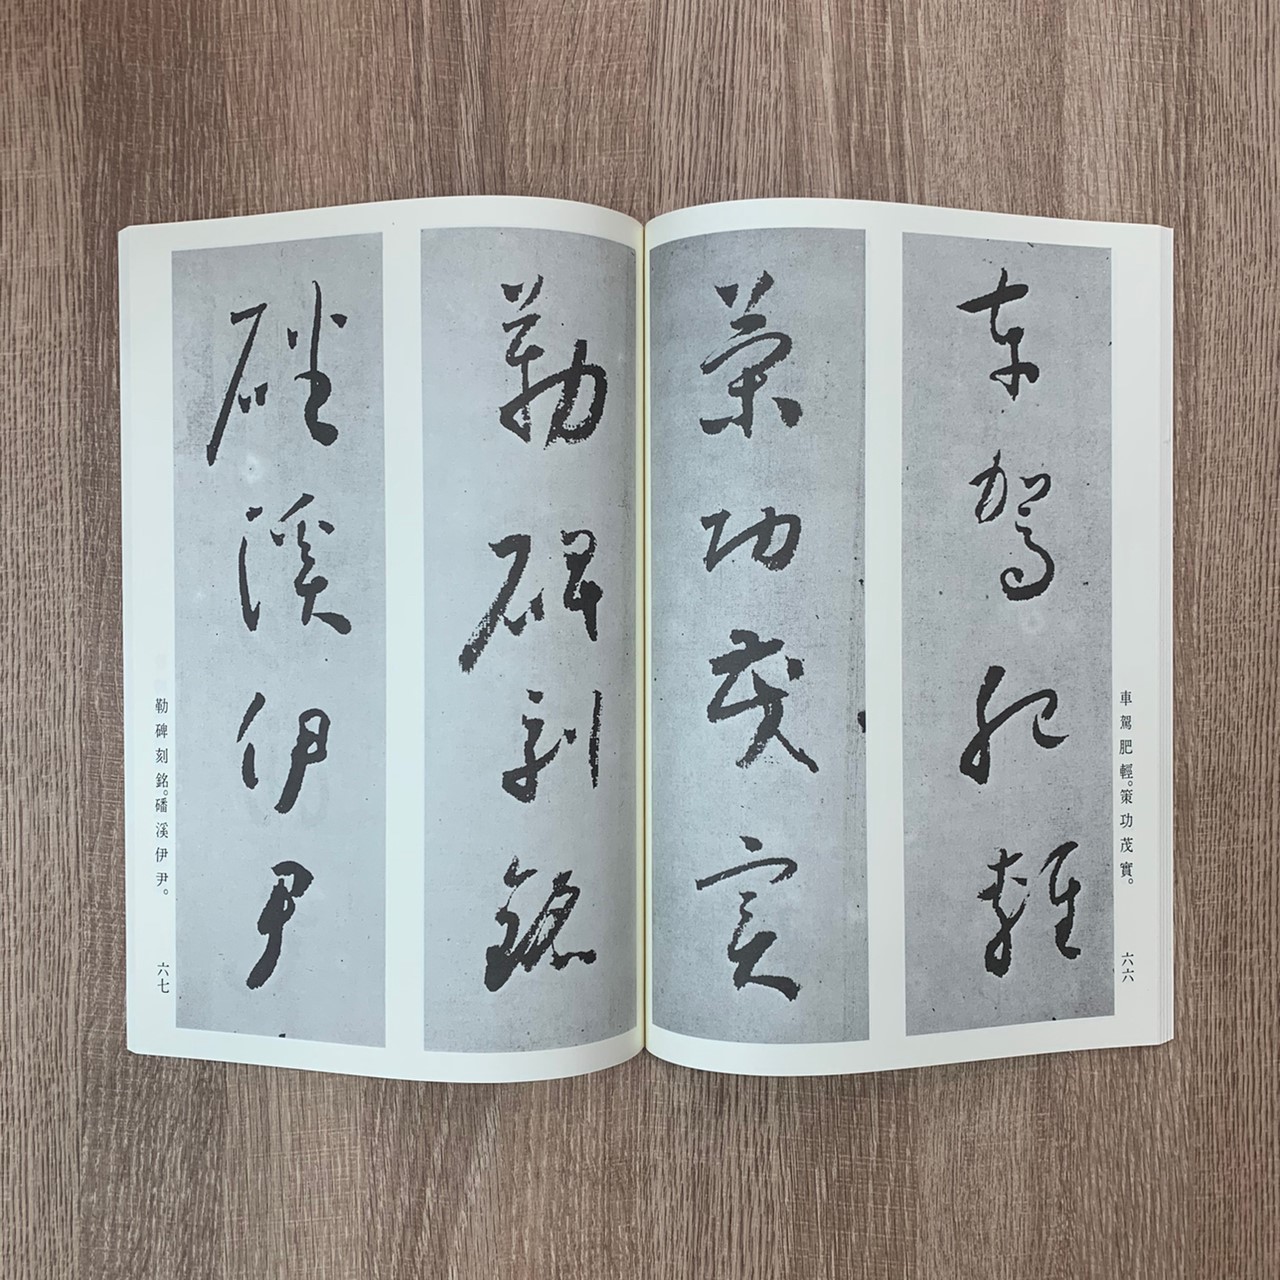 車駕肥輕
策功茂實
車駕肥輕。策功茂實。
六六
勒碑刻銘
磻溪伊尹
勒碑刻銘。磻溪伊尹。
六七